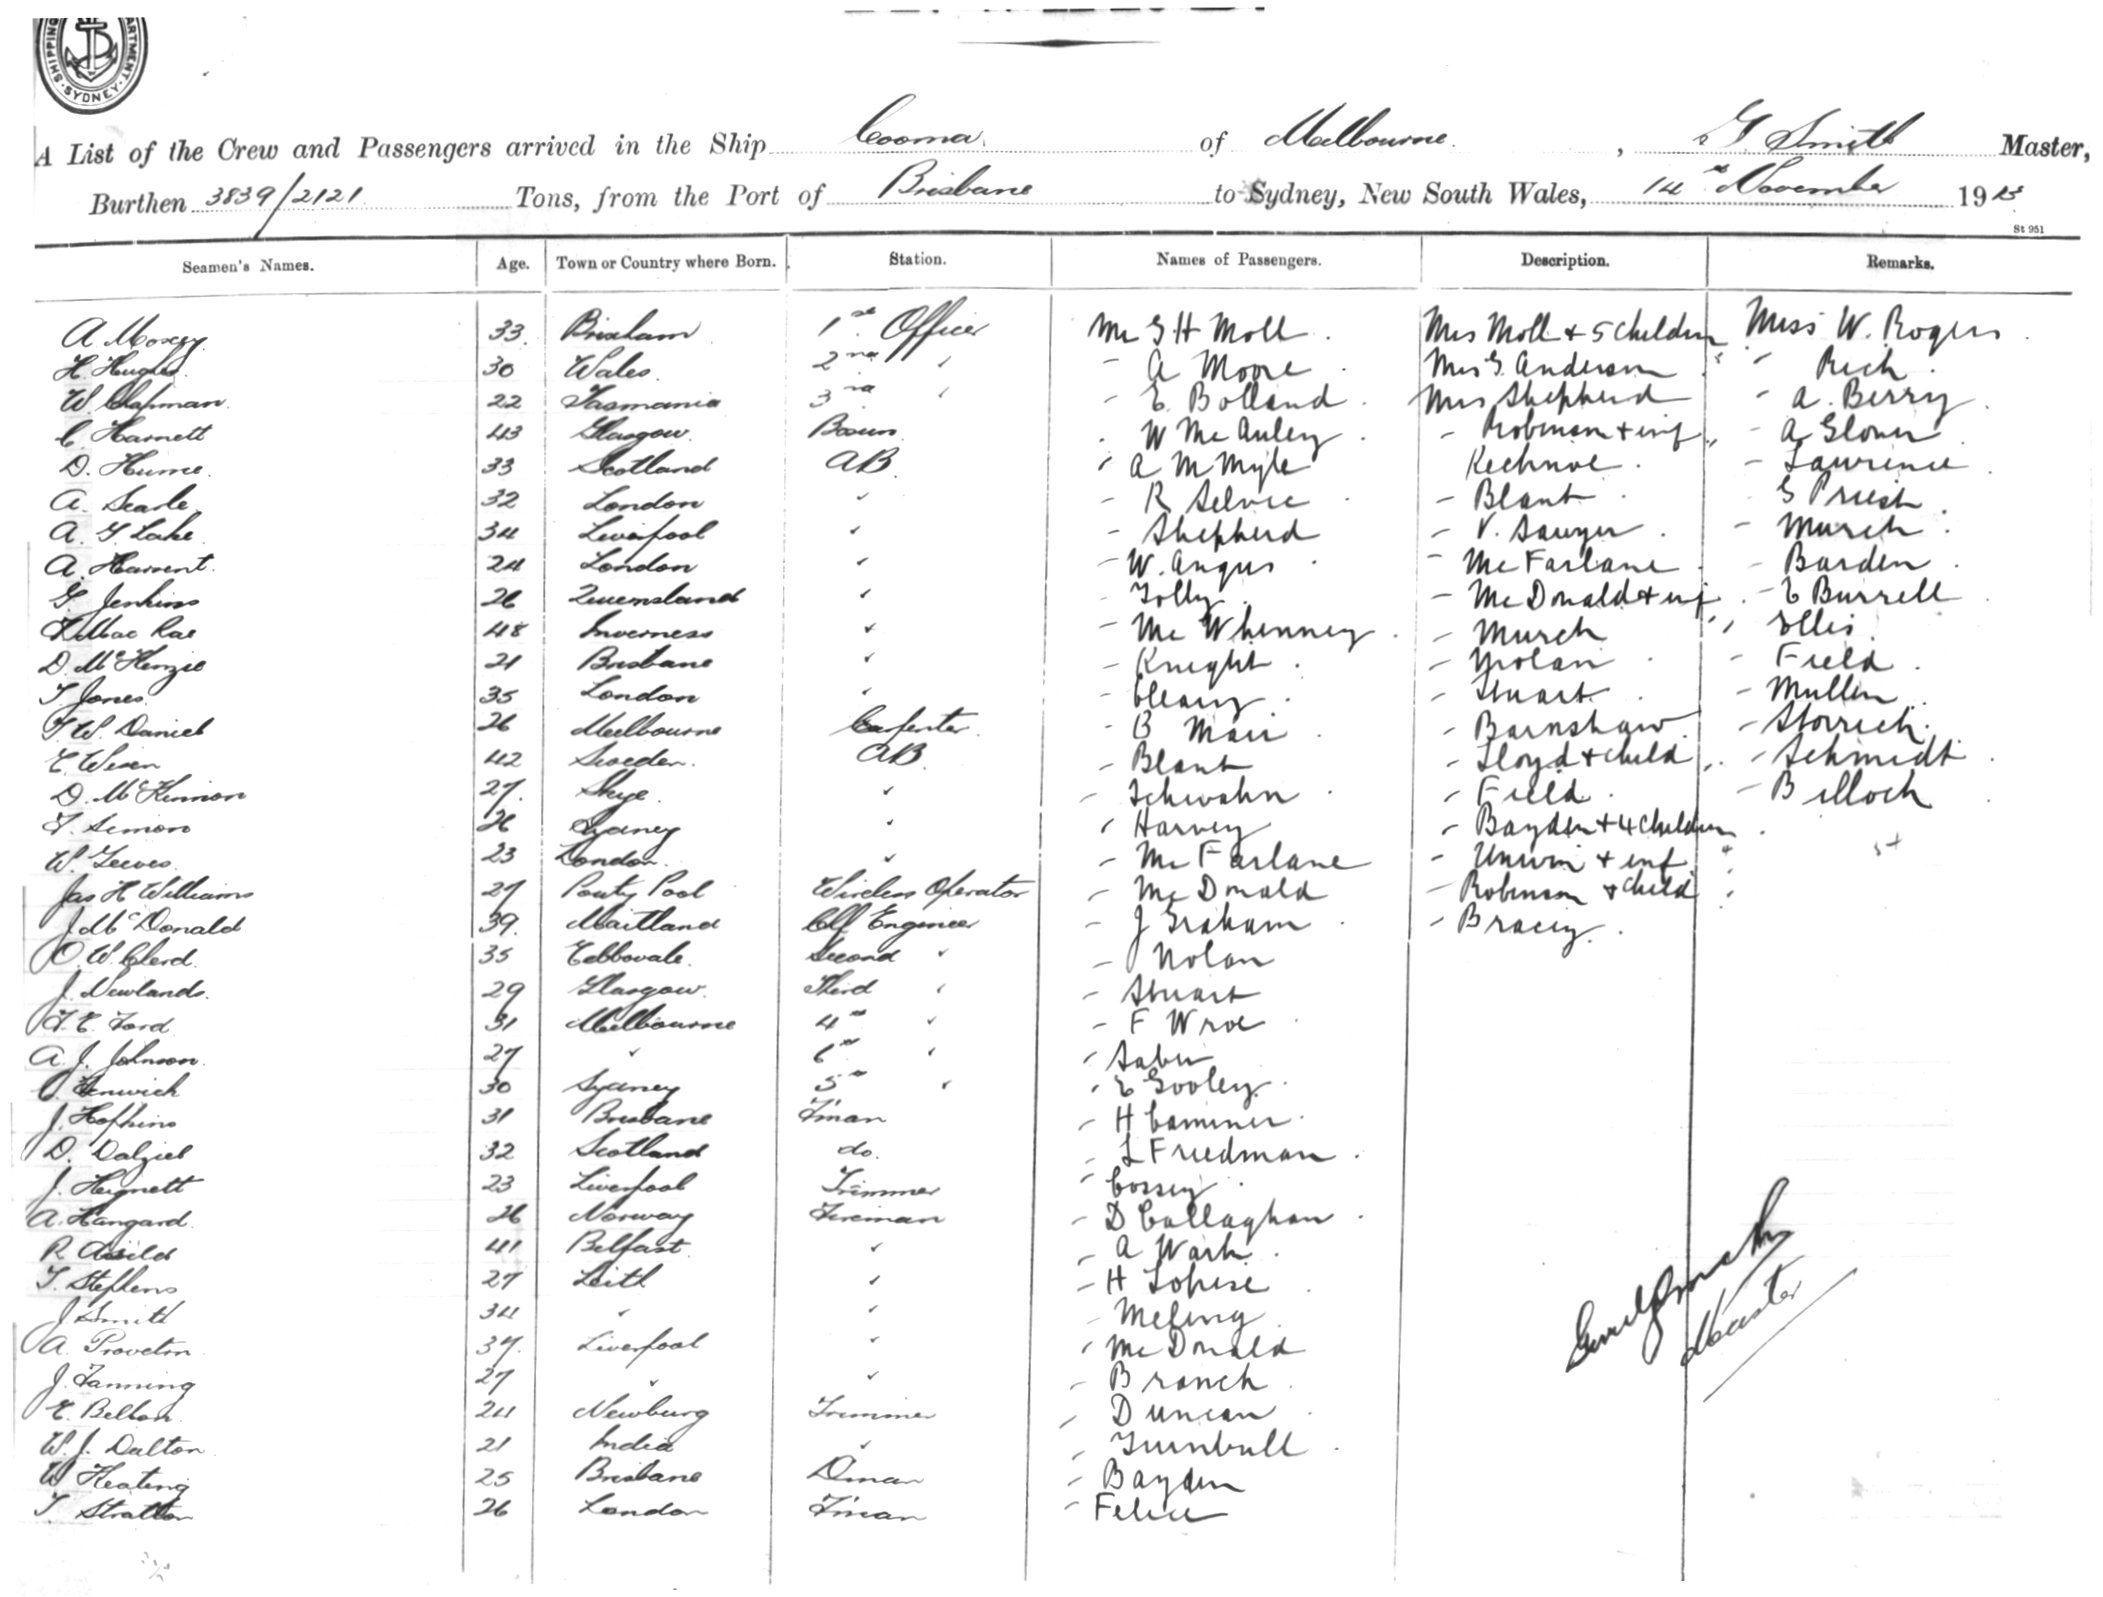 SHIPPING DEPARTMENT. SYDNEY
A List of the Crew and Passengers arrived in the Ship Cooma of Melbourne, Smith Master,
Burthen 3839/2121 Tons, from the Port of Brisbane to Sydney, New South Wales, 14th November 191
St 951
Seamen's Names. Age. Town or Country where Born. Station. Names of Passengers. Description. Remarks.
A Moxey 33 Brixham 1st Officer Mr G H Moll Mrs Moll + 5 children Miss W. Rogers
H. Hughes 30 Wales 2nd " - A Moore Mrs G. Anderson " Rich
W. Chapman 22 Tasmania 3rd " - E. Bolland Mrs Shepherd - A. Berry
C. Harnett 43 Glasgow Bosun - W McAuley - Robinson + inf - A Glover
D. Hume 33 Scotland AB - A M Myle - Lawrence
A. Searle 32 London " - R Selvie - Blant - G Priest
A. G. Lake 34 Liverpool " - Shepherd - V. Sawyer - Murch
A. Harvent 24 London " - W. Angus - McFarlane - Barden
G. Jenkins 26 Queensland " - Tolly - McDonald + inf - E Burrell
MacRae 48 Inverness " - McWhinney - Murch " Ellis
D. McKenzie 21 Brisbane " - Knight - Nolan - Field
T. Jones 35 London " - Cleary - Stuart - Mullin
T. W. Daniel 26 Melbourne Carpenter - B Mair - Barnshaw - Storrich
E. Wiren 42 Sweden AB - Blant - Lloyd + child - Schmidt
D. McKinnon 27 Skye " - Schwahn - Field - Billoch
F. Simon 26 Sydney " - Harvey - Bayden + 4 children
W. Reeves 23 London " - McFarlane - Unwin + inf
Jas H Williams 27 Ponty Pool Wireless Operator - McDonald - Robinson + child
J McDonald 39 Maitland Chf Engineer - J Graham - Bracey
O. W. Clerd 35 Ebbovale Second " - Nolan
J. Newlands 29 Glasgow Third " - Stuart
F. E. Ford 31 Melbourne 4th " - F Wroe
A. J. Johnson 27 " 6th " - Sabin
Fenwick 30 Sydney 5th " - E Gooley
J. Hopkins 31 Brisbane F'man - H Caminer
D. Dalziel 32 Scotland do. - L Friedman
J. Hignett 23 Liverpool Trimmer - Cossey
A. Hangard 26 Norway Fireman - D Callaghan
R 41 Belfast " - A Wark
T. Stephens 27 Leith " - H
J Smith 34 " " - Meling
A. Proveton 37 Liverpool " - McDonald
J. Fanning 27 " " - Branch
E. Belton 24 Newburg Trimmer - Duncan
W. J. Dalton 21 India " - Turnbull
W Keating 25 Brisbane D'man - Bayden
T. Stratton 26 London F'man - Felice
Master